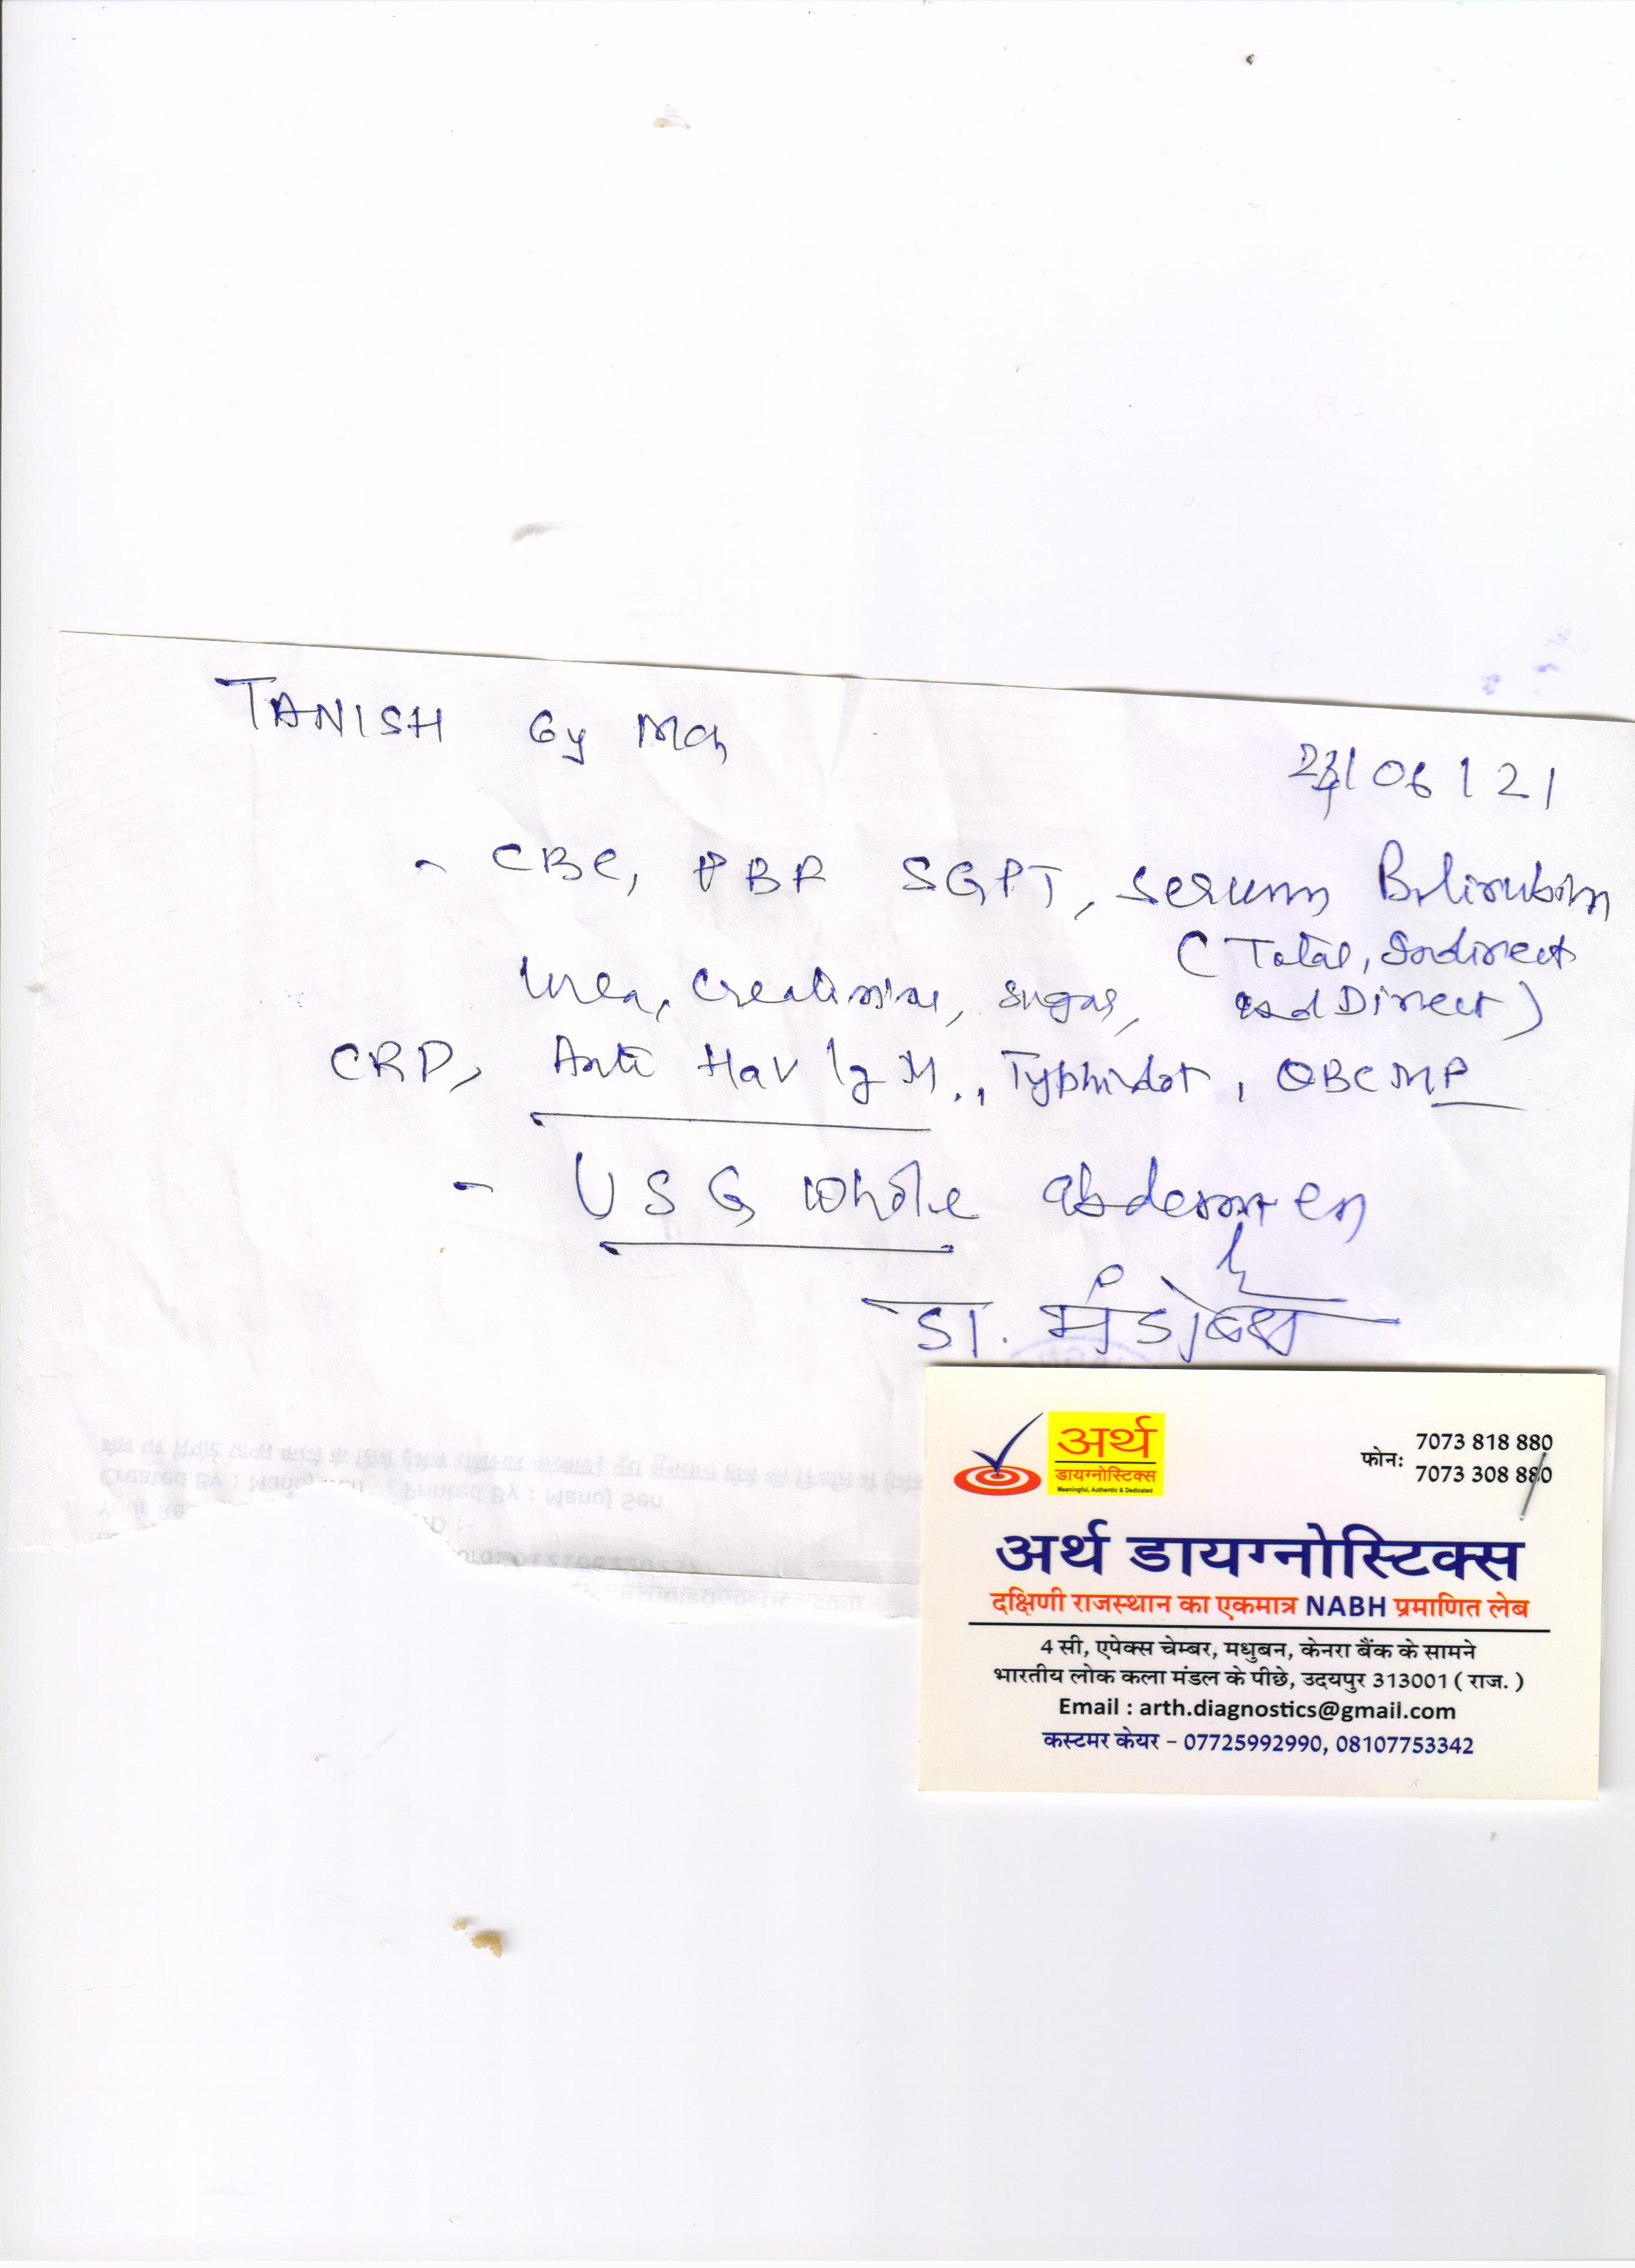 TANISH 6y Mch
23/06/21
- CBC, PBF SGPT, Serum Bilirubin
(Total, Indirect
Urea, Creatinine, Sugar, and Direct)
CRP, Anti Hav IgM., Typhidot, QBC MP
- USG whole abdomen
डा.
अर्थ
डायग्नोस्टिक्स
Meaningful, Authentic & Dedicated
फोन: 7073 818 880
7073 308 880
अर्थ डायग्नोस्टिक्स
दक्षिणी राजस्थान का एकमात्र NABH प्रमाणित लेब
4 सी, एपेक्स चेम्बर, मधुबन, केनरा बैंक के सामने
भारतीय लोक कला मंडल के पीछे, उदयपुर 313001 ( राज. )
Email : arth.diagnostics@gmail.com
कस्टमर केयर – 07725992990, 08107753342
Created By : Printed By : Manoj Sen